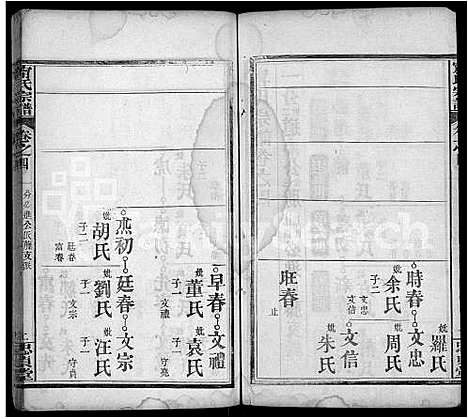 妣羅氏
時春
文忠
妣余氏
子二
文忠
文信
妣周氏
旺春
止
文信
妣朱氏
宗譜
卷之四
氏宗譜
早春
文禮
妣董氏
子一
文禮
妣袁氏
子一
守亮
初
廷春
文宗
妣胡氏
子二
廷春
富春
妣劉氏
子一
文宗
妣汪氏
子一
守貞
堂